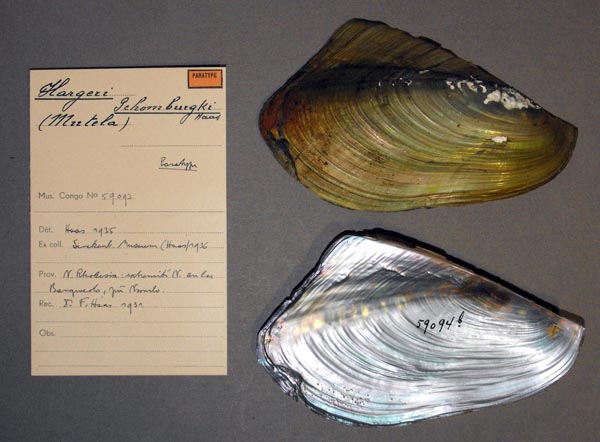 PARATYPE
Hargeri Schomburgki
Haas
(Mutela)
Paratype
Mus. Congo No 59092
Dét. Haas 1935
Ex coll. Senckenb. Museum (Haas) 1936
Prov. N. Rhodesia: extremité N. du lac
Bangweolo, près
Rec. Dr F. Haas 1931
Obs.
59094 b